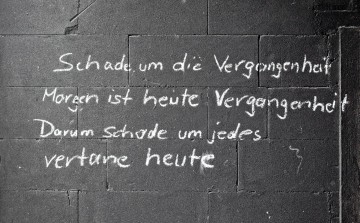 Schade um die Vergangenheit
Morgen ist heute Vergangenheit
Darum schade um jedes
vertane heute